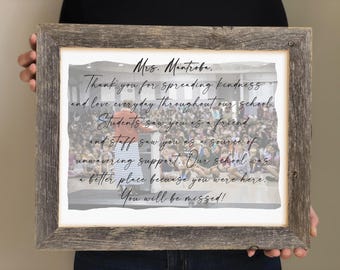 Mrs. Mantroba,
Thank you for spreading kindness
and love everyday throughout our school.
Students saw you as a friend
and staff saw you as a source of
unwavering support. Our school was
a better place because you were here.
You will be missed!